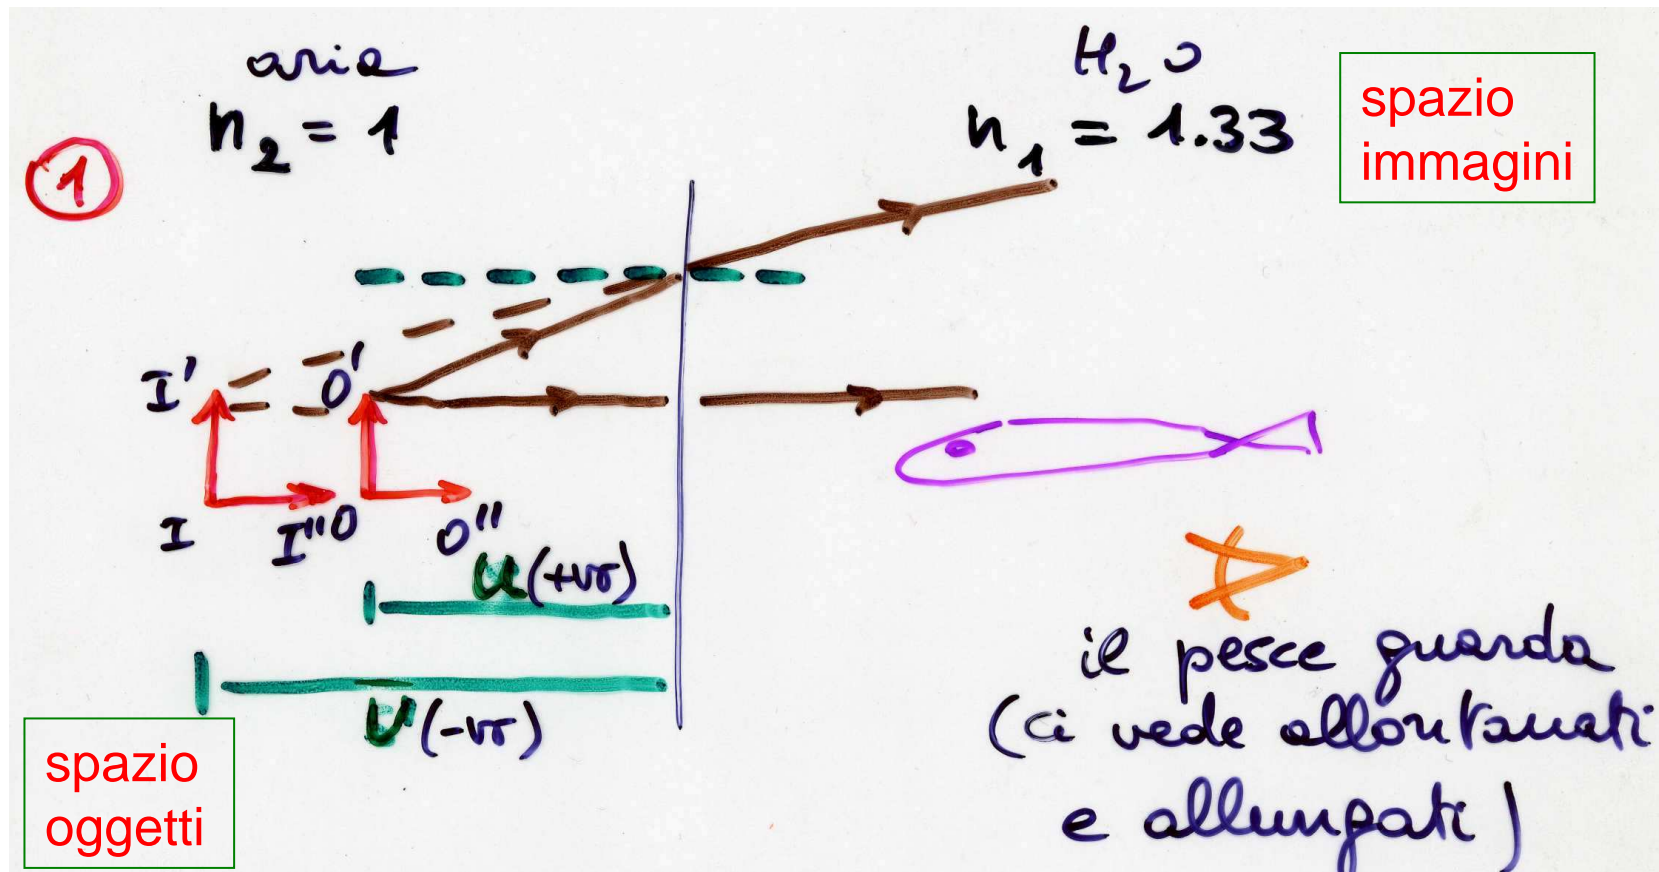 aria
n₂ = 1
H₂O
n₁ = 1.33
spazio
immagini
1
I'
O'
I
I''
O
O''
u (+ve)
v (-ve)
il pesce guarda
(ci vede allontanati
e allungati)
spazio
oggetti